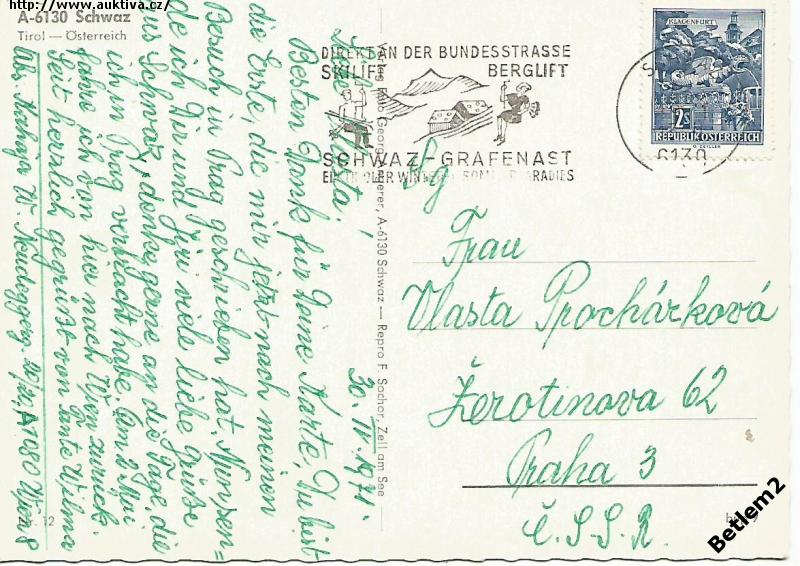 http://www.auktiva.cz/
A-6130 Schwaz
Tirol — Österreich
DIREKT AN DER BUNDESSTRASSE
SKILIFT BERGLIFT
SCHWAZ-GRAFENAST
EIN TIROLER WINTER- SOMMERPARADIES
KLAGENFURT
2S
REPUBLIK ÖSTERREICH
G. ZEILLER
6130
A-6130 Schwaz — Repro F. Sochor, Zell am See
30. IV. 1971.
Liebe Vlasta!
Besten Dank für Deine Karte, Du bist
die Erste, die mir jetzt nach meinen
Besuch in Prag geschrieben hat. Nun sen=
de ich Dir und Jiri viele liebe Grüße
aus Schwaz, denke gerne an die Tage, die
ich in Prag verbracht habe. Am 2. Mai
fahre ich von hier nach Wien zurück.
Seit herzlich gegrüßt von Tante Wilma
W. Neudeggerg. A 1080 Wien 8
Frau
Vlasta Procházková
Žerotinova 62
Praha 3
Č.S.S.R.
Nr. 12
Betlem2